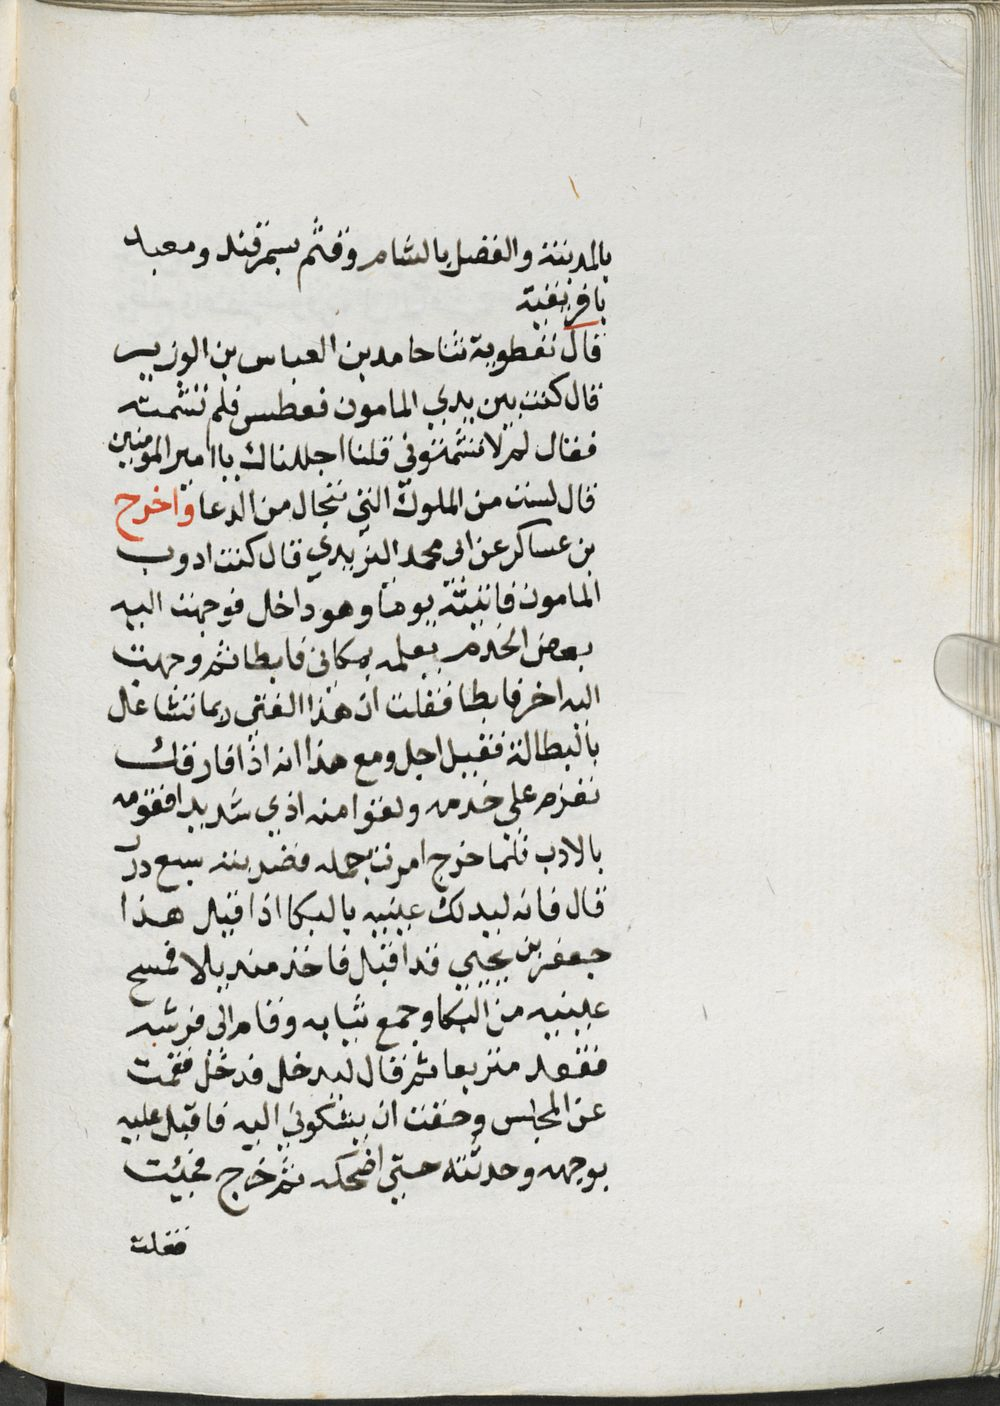 بالمدينة والفضل بالشام وقثم بسمرقند ومعبد
بافريقية
قال نفطوية ثنا حامد بن العباس بن الوزير
قال كنت بين يدي المامون فعطس فلم نشمته
فقال لم لا تشمتوني قلنا اجللناك يا امير المومنين
قال لست من الملوك التي تتجال من الدعا واخرج
بن عساكر عن ابى محمد اليزيدي قال كنت ادوب
المامون فاتيته يوما وهو داخل فوجهت اليه
بعض الخدم يعلمه بمكانى فابطا ثم وجهت
اليه اخر فابطا فقلت ان هذا الفتي ربما تشاغل
بالبطالة فقيل اجل ومع هذا انه اذا فارقك
تعزم على خدمه ولقوا منه اذي شديدا فقومه
بالادب فلما خرج امرت بحمله فضربته سبع درر
قال فانه ليدلك عينيه بالبكا اذا قيل هذا
جعفر بن يحيي قد اقبل فاخذ منديلا فمسح
عينيه من البكا وجمع ثيابه وقام الى فرشه
فقعد متربعا ثم قال ليدخل فدخل فقمت
عن المجلس وخفت ان يشكوني اليه فاقبل عليه
بوجهه وحدثته حتي اضحكه ثم خرج فجئت
فقلت